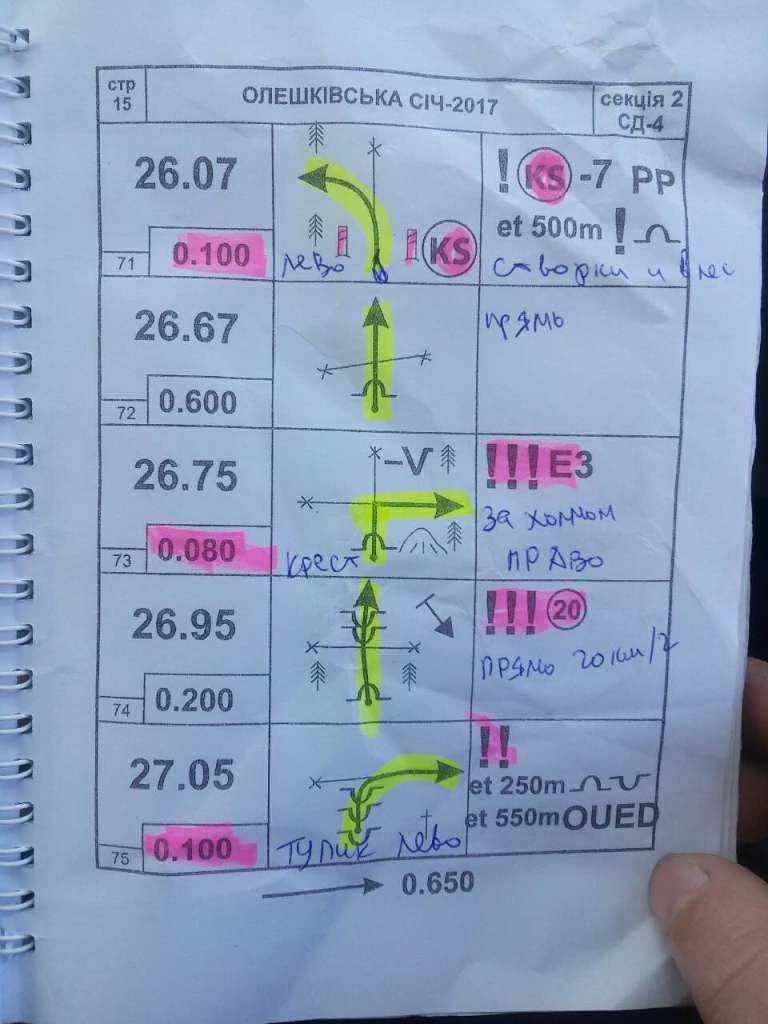 стр 15
ОЛЕШКІВСЬКА СІЧ-2017
секція 2
СД-4
26.07
0.100
71
лево
KS
! KS -7 PP
et 500m !
створки и в лес
26.67
0.600
72
прямо
26.75
0.080
73
крест
!!! E3
за холмом
право
26.95
0.200
74
!!! 20
прямо 20 км/ч
27.05
0.100
75
тупик лево
!!
et 250m
et 550m OUED
0.650